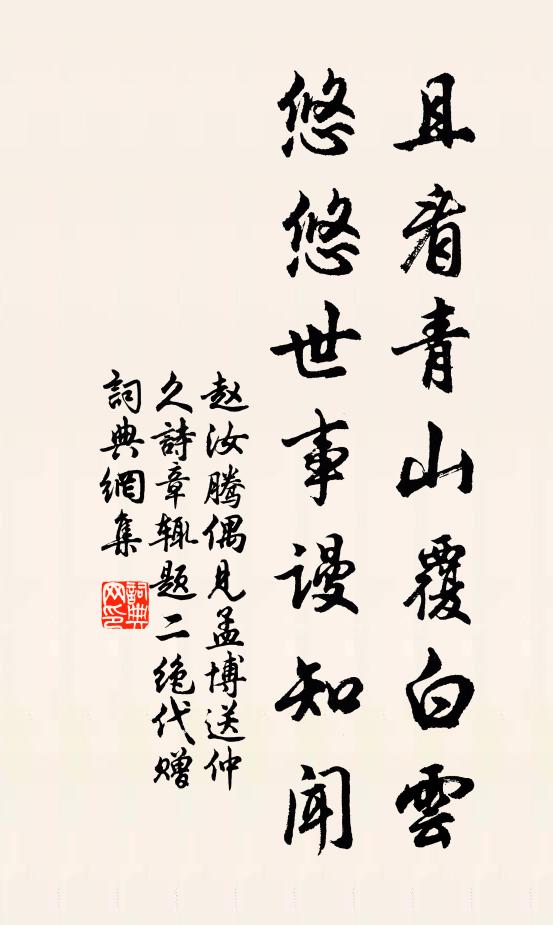 且看青山覆白雲
悠悠世事謾知聞
赵汝腾偶見孟博送仲
久詩章輒题二绝代赠
詞典網集
詞典
网印